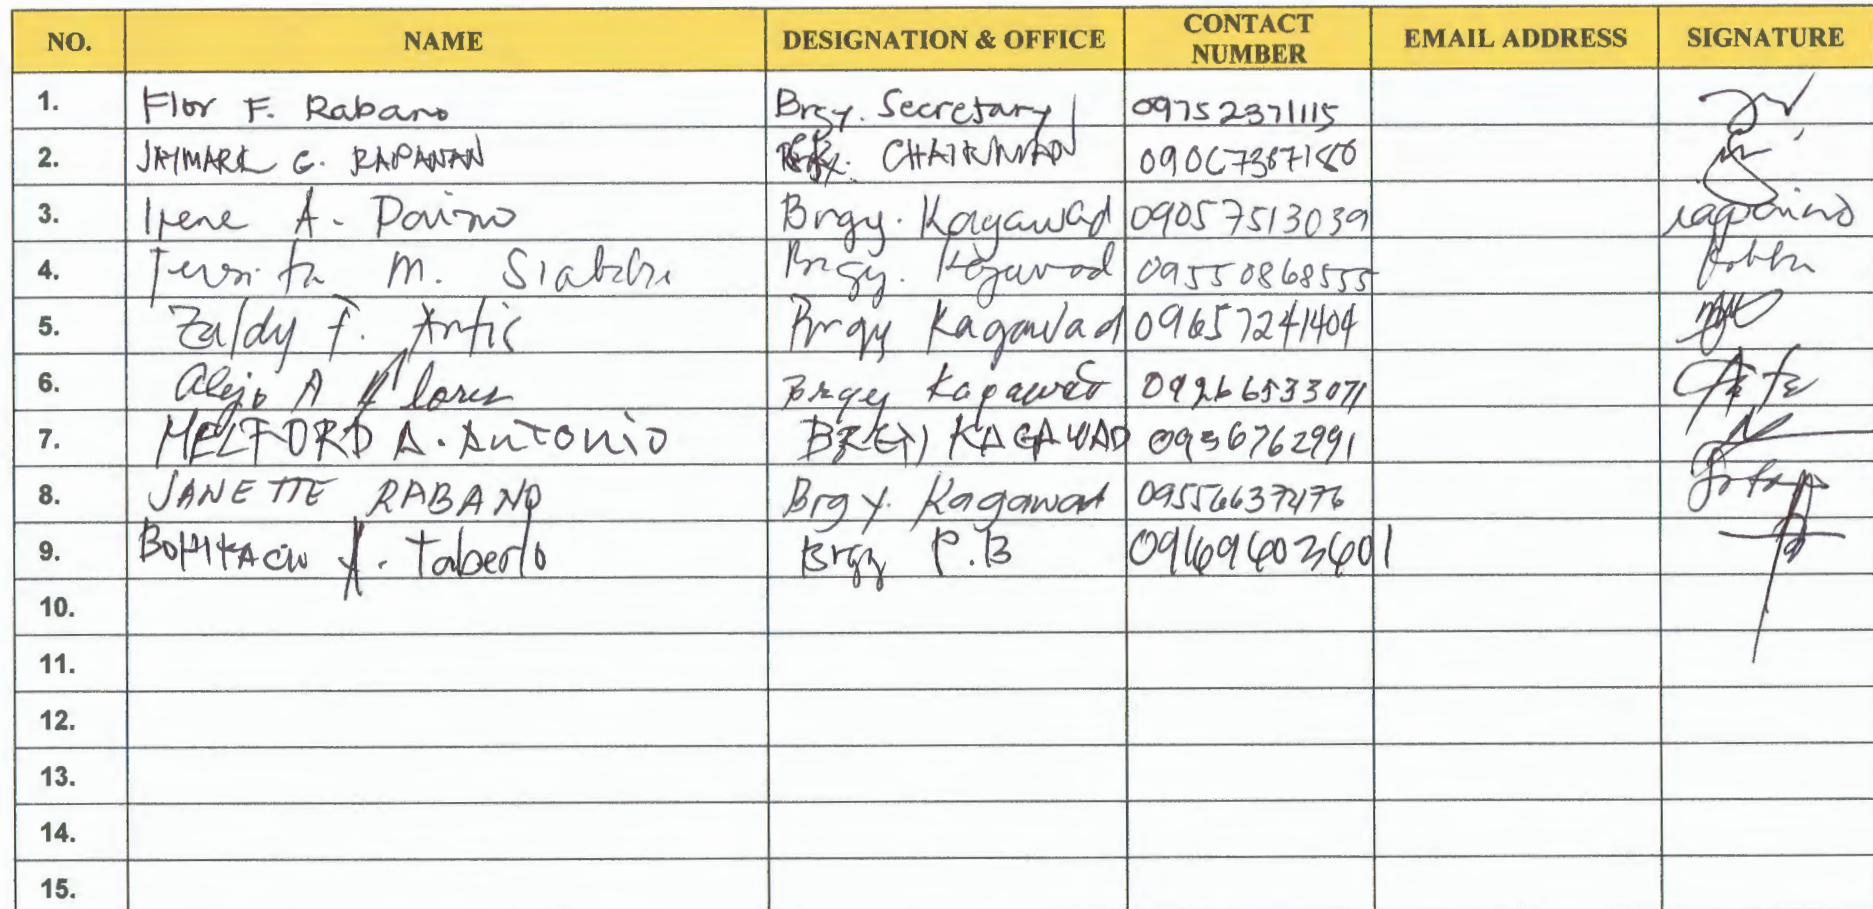 NO. NAME DESIGNATION & OFFICE CONTACT NUMBER EMAIL ADDRESS SIGNATURE
1. Flor F. Rabano Brgy. Secretary 09752371115
2. JAYMARK G. RAPANAN CHAIRMAN 09067387180
3. Irene A. Brgy. Kagawad 09057513039
4. M. Brgy. Kagawad 09550868555
5. Zaldy F. Antic Brgy Kagawad 09657241404
6. Alejo A Flores Brgy Kagawad 09266533071
7. MELFORD A. Antonio BRGY KAGAWAD 0936762991
8. JANETTE RABANO Brgy. Kagawad 09556637476
9. Taberlo Brgy P.B 09169603601
10.
11.
12.
13.
14.
15.